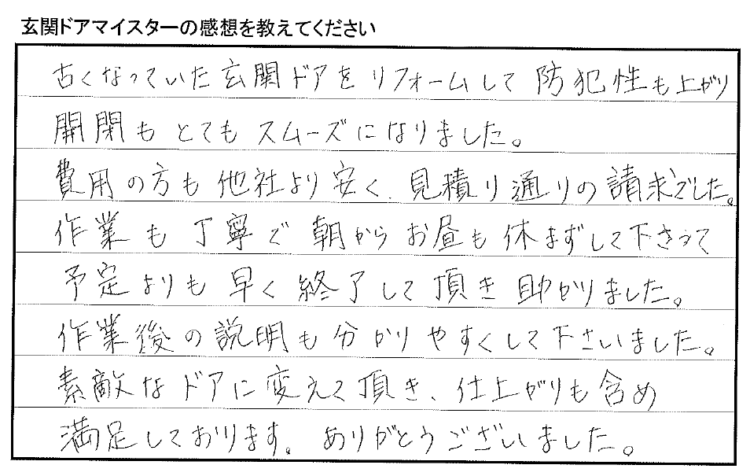 玄関ドアマイスターの感想を教えてください
古くなっていた玄関ドアをリフォームして防犯性も上がり
開閉もとてもスムーズになりました。
費用の方も他社より安く、見積り通りの請求でした。
作業も丁寧で朝からお昼も休まずして下さって
予定よりも早く終了して頂き助かりました。
作業後の説明も分かりやすくして下さいました。
素敵なドアに変えて頂き、仕上がりも含め
満足しております。ありがとうございました。